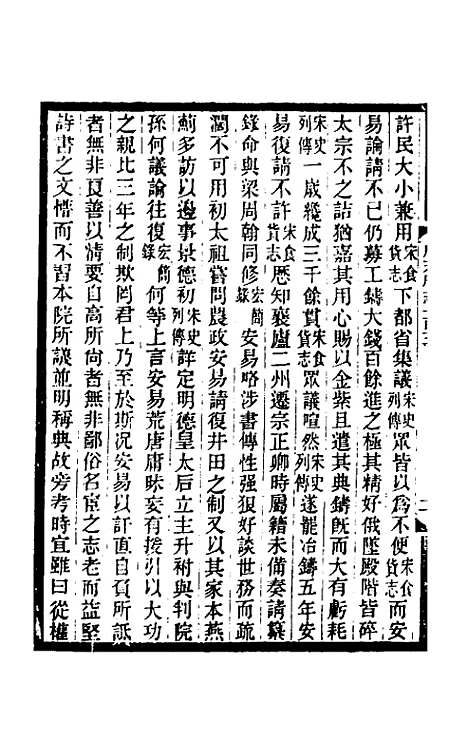 許民大小兼用宋食貨志下都省集議宋史列傳眾皆以爲不便宋食貨志而安
易論請不已仍募工鑄大錢百餘進之極其精好俄墜殿階皆碎
太宗不之詰猶嘉其用心賜以金紫且遣其典鑄旣而大有虧耗
宋史列傳一歲纔成三千餘貫宋食貨志眾議喧然宋史列傳遂罷冶鑄五年安
易復請不許宋食貨志歷知襄廬二州遷宗正卿時屬籍未備奏請纂
錄命與梁周翰同修宏簡錄安易略涉書傳性强狠好談世務而疏
濶不可用初太祖嘗問農政安易請復井田之制又以其家本燕
薊多訪以邊事景德初宋史列傳詳定明德皇太后立主升祔與判院
孫何議論往復宏簡錄何等上言安易荒唐庸昧妄有援引以大功
之親比三年之制欺罔君上乃至於斯況安易以訐直自負所詆
者無非良善以清要自高所尚者無非鄙俗名宦之志老而益堅
詩書之文懵而不習本院所議並明稱典故旁考時宜雖曰從權